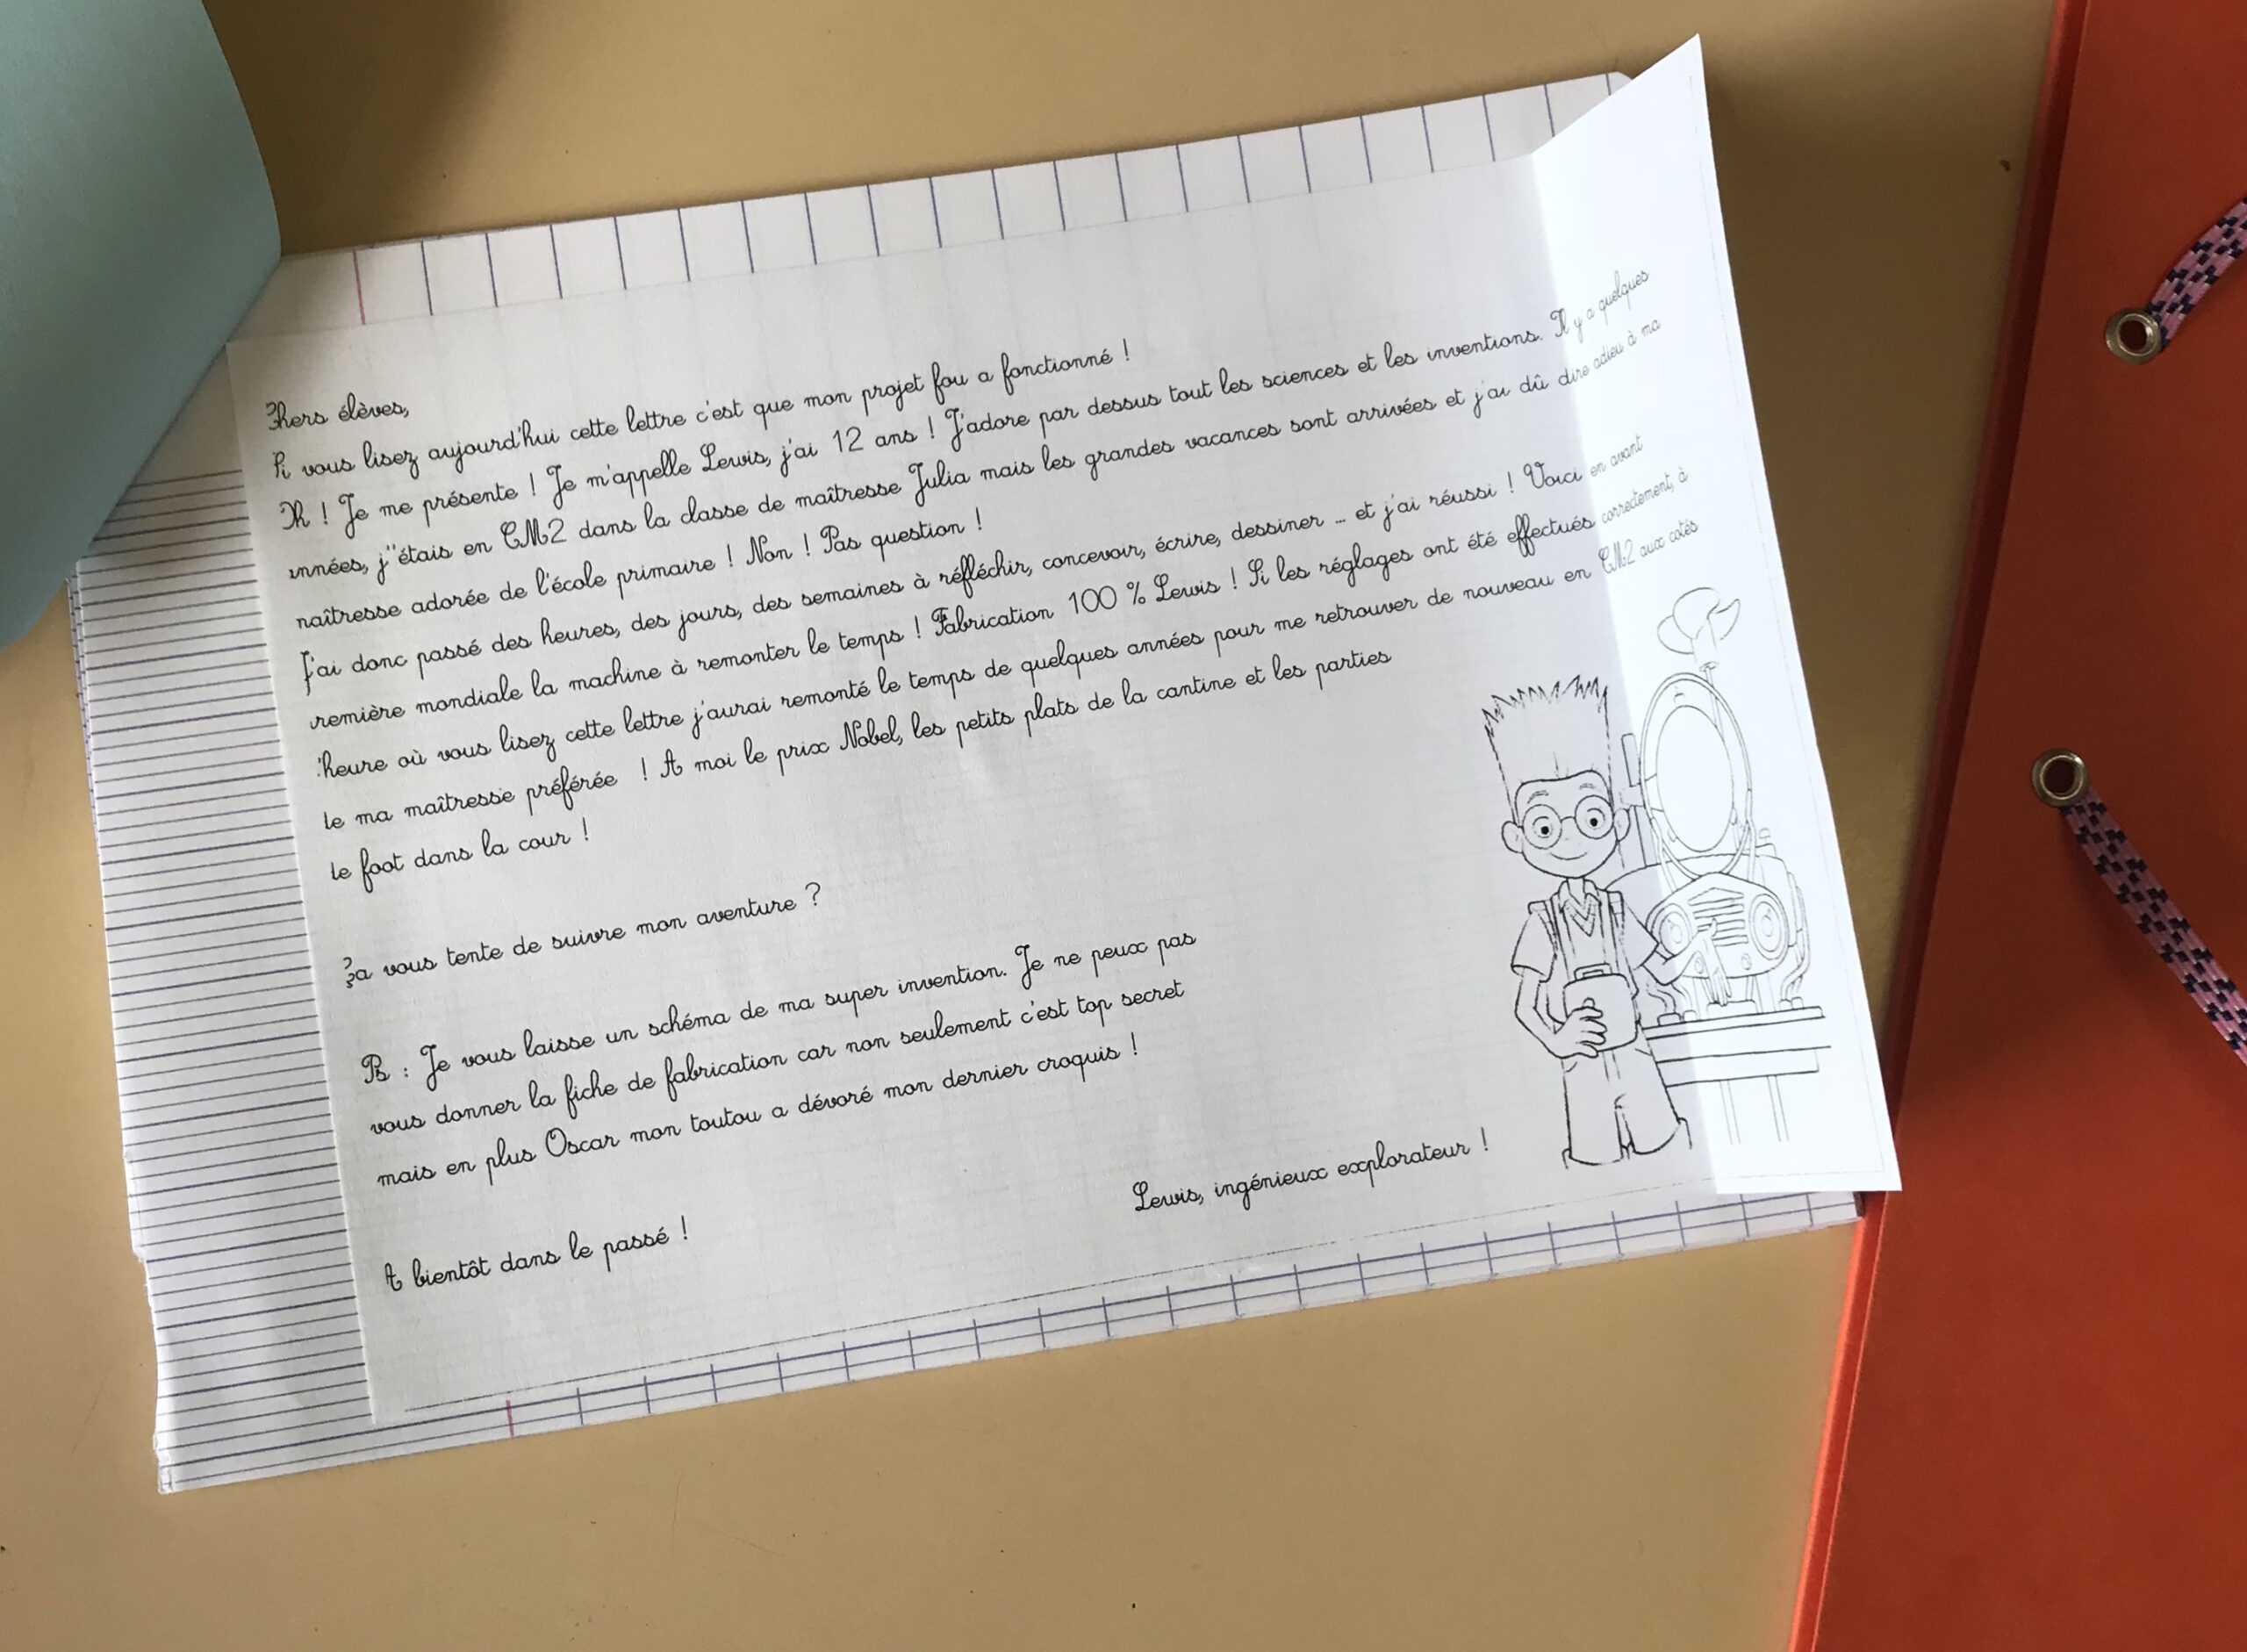 Chers élèves,
Si vous lisez aujourd'hui cette lettre c'est que mon projet fou a fonctionné !
Oh ! Je me présente ! Je m'appelle Lewis, j'ai 12 ans ! J'adore par dessus tout les sciences et les inventions. Il y a quelques
années, j''étais en CM2 dans la classe de maîtresse Julia mais les grandes vacances sont arrivées et j'ai dû dire adieu à ma
maîtresse adorée de l'école primaire ! Non ! Pas question !
J'ai donc passé des heures, des jours, des semaines à réfléchir, concevoir, écrire, dessiner ... et j'ai réussi ! Voici en avant
première mondiale la machine à remonter le temps ! Fabrication 100 % Lewis ! Si les réglages ont été effectués correctement, à
l'heure où vous lisez cette lettre j'aurai remonté le temps de quelques années pour me retrouver de nouveau en CM2 aux cotés
de ma maîtresse préférée ! A moi le prix Nobel, les petits plats de la cantine et les parties
de foot dans la cour !
Ça vous tente de suivre mon aventure ?
Ps : Je vous laisse un schéma de ma super invention. Je ne peux pas
vous donner la fiche de fabrication car non seulement c'est top secret
mais en plus Oscar mon toutou a dévoré mon dernier croquis !
Lewis, ingénieux explorateur !
A bientôt dans le passé !